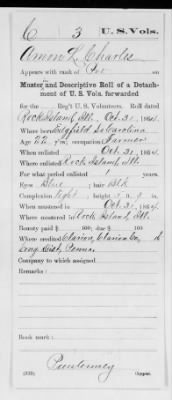 C 3 U.S. Vols.
Amon L. Charles
Appears with rank of Pvt on
Muster and Descriptive Roll of a Detach-
ment of U. S. Vols. forwarded
for the Reg't U.S. Volunteers. Roll dated
Rock Island, Ill. Oct. 31, 1864.
Where born Edgfield So. Carolina
Age 22 y'rs; occupation Farmer
When enlisted Oct. 31, 1864.
Where enlisted Rock Island, Ill.
For what period enlisted 1 years.
Eyes Blue; hair Blk
Complexion light; height 5 ft. in.
When mustered in Oct. 31, 1864.
Where mustered in Rock Island, Ill.
Bounty paid $ 100; due $ 100
Where credited Clarion, Clarion Co.,
Cong. Dist, Penna.
Company to which assigned
Remarks:
Book mark:
(339) Copyist.